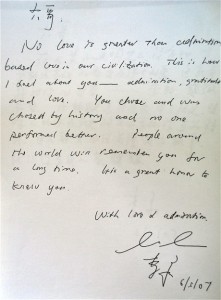 No love is greater than admiration
based love in our civilization. This is how
I feel about you — admiration, gratitude
and love. You chose and was
chosed by history and no one
performed better. People around
the world will remember you for
a long time. It's a great honor to
know you.
With love & admiration
6/5/07